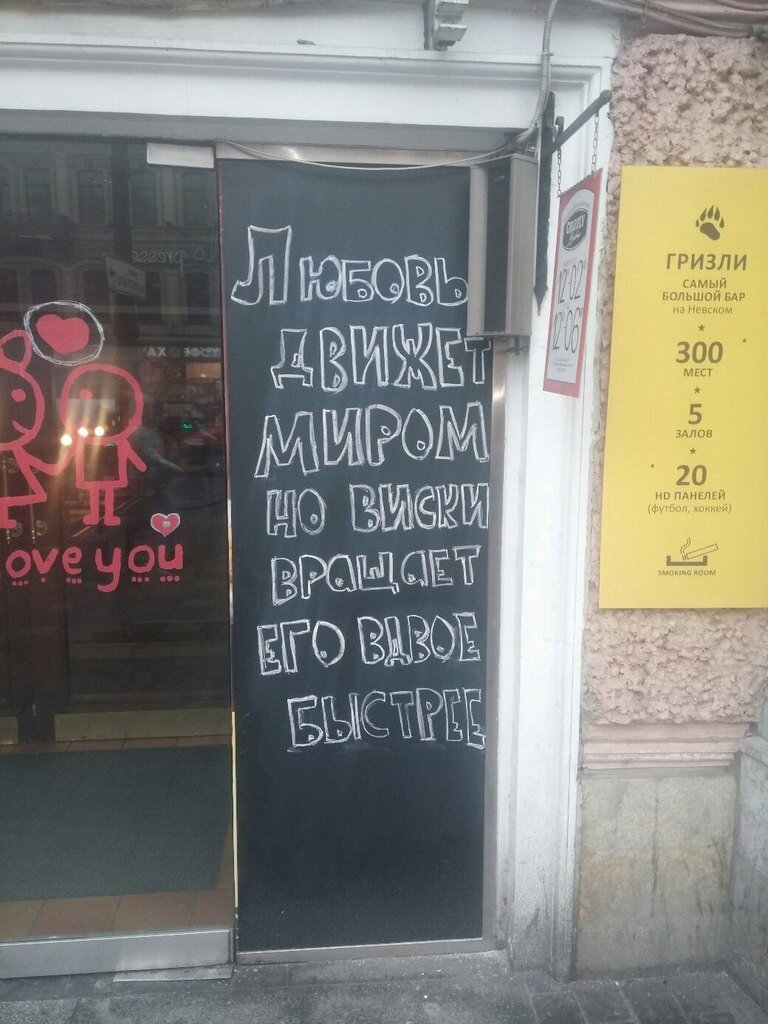 Любовь
движет
миром
но виски
вращает
его вдвое
быстрее
ove you
ГРИЗЛИ
САМЫЙ
БОЛЬШОЙ БАР
на Невском
300
МЕСТ
5
ЗАЛОВ
20
HD ПАНЕЛЕЙ
(футбол, хоккей)
SMOKING ROOM
GRIZZLY
12-02
12-06